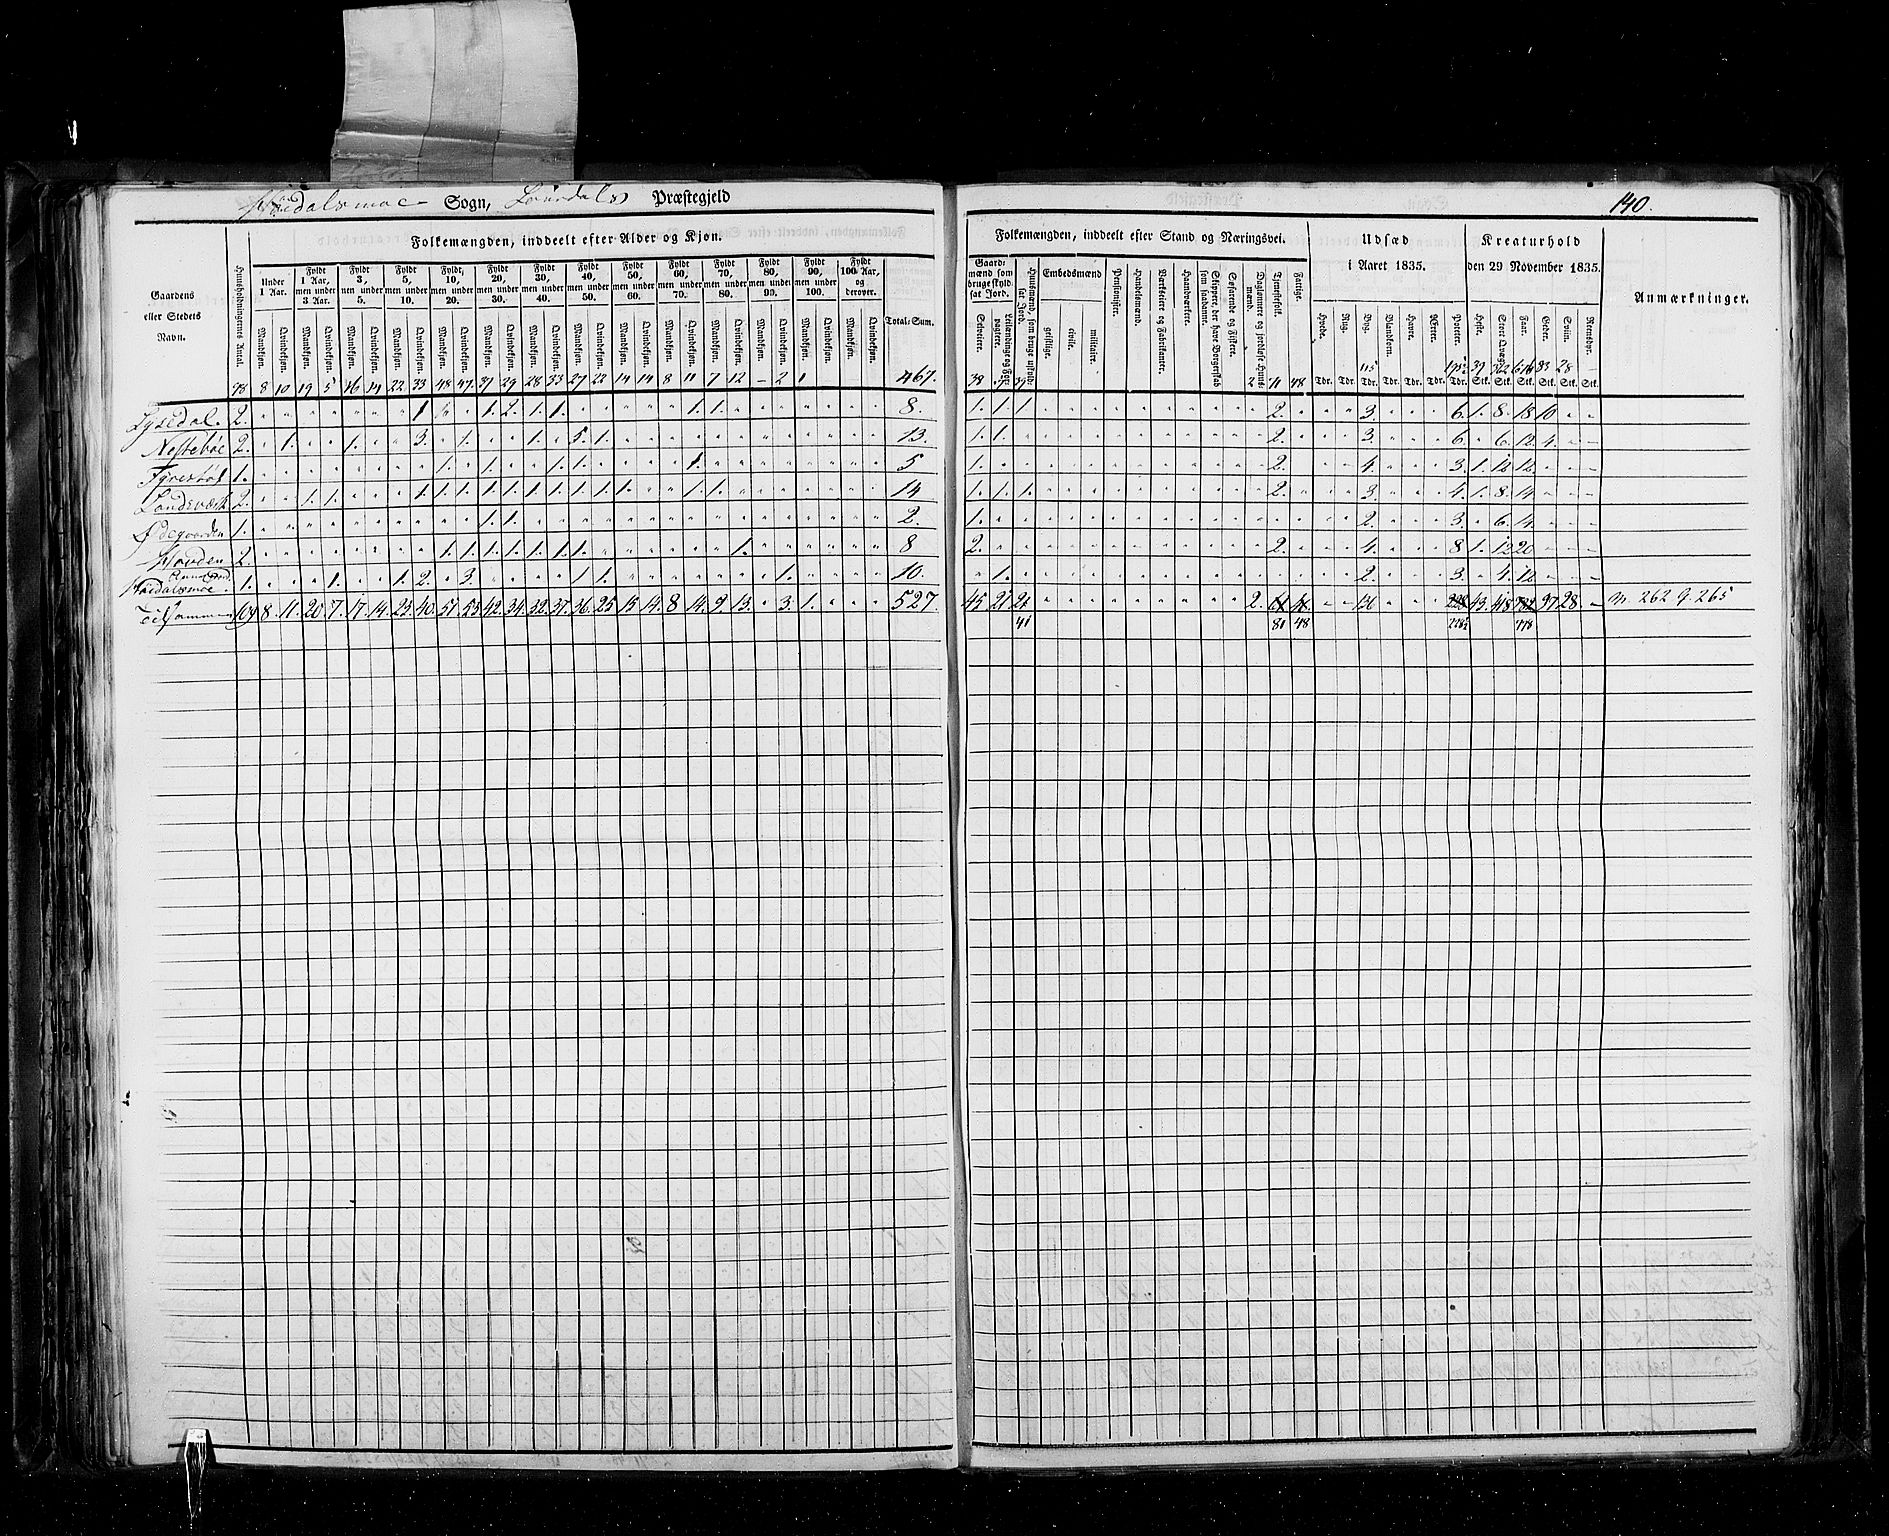 Høidalsmoe Sogn, Laurdals Præstegjeld
140.
Folkemængden, inddeelt efter Alder og Kjøn.
Folkemængden, inddeelt efter Stand og Næringsvei.
Udsæd i Aaret 1835.
Kreaturhold den 29 November 1835.
Anmærkninger.
Gaardens eller Stedets Navn.
Huusholdningernes Antal.
Under 1 Aar.
Fyldt 1 Aar, men under 3 Aar.
Fyldt 3, men under 5.
Fyldt 5, men under 10.
Fyldt 10, men under 20.
Fyldt 20, men under 30.
Fyldt 30, men under 40.
Fyldt 40, men under 50.
Fyldt 50, men under 60.
Fyldt 60, men under 70.
Fyldt 70, men under 80.
Fyldt 80, men under 90.
Fyldt 90, men under 100.
Fyldt 100 Aar, og derover.
Mandkjøn. Qvindekjøn.
Total-Sum.
Gaardmænd som bruge skyldsat Jord.
Selveiere.
Leilændinge og Forpagtere.
Huusmænd, som bruge uskyldsat Jord.
Embedsmænd
geistlige. civile. militaire.
Pensionister.
Handelsmænd.
Værkseiere og Fabrikanter.
Haandværkere.
Skippere, der have Borgerskab som saadanne.
Søfarende og Fiskere.
Daglønnere og jordløse Huusmænd.
Tjenestefolk.
Fattige.
Hvede. Rug. Byg. Blandkorn. Havre. Erter. Poteter.
Heste. Stort Qvæg. Faar. Geder. Sviin. Rensdyr.
Tdr. Tdr. Tdr. Tdr. Tdr. Tdr. Tdr. Stk. Stk. Stk. Stk. Stk. Stk.
78 8 10 19 5 16 14 22 33 48 47 37 29 28 33 27 22 14 14 8 11 7 12 – 2 1 467.
Lysedal. 2. 8.
1. 1. 1 2. 3. 6. 1. 8. 18 10
Nestebøe 2. 1. 1. 3. 1. 1. 5. 1. 13.
1. 1. 2. 3. 6. 6. 12. 4.
1. 1. 1. 1. 1. 1. 5
1. 2. 4. 3. 1. 12 12
2. 1. 1. 1. 1. 1. 1. 1. 1. 1. 1. 1. 1. 1. 14
1. 1. 1. 2. 3. 4. 1. 8. 14
Ødegaarden 1. 1. 1. 2.
1. 2. 3. 6. 4.
2. 1. 1. 1. 1. 1. 1. 1. 1. 8
2. 2. 4. 8 1. 12 20
Høidalsmoe 1. 1. 1. 2. 3. 1 1. 1. 10.
1. 2. 3. 4. 12
Tilsammen 109 8. 11. 20. 7. 17. 14. 23. 40. 51. 53. 42. 34. 32. 37. 36. 25 15 14. 8 14. 9. 13. 3. 1. 527.
45 21 2. 136 43. 418 97 28. m. 262 q. 265
41 81 48 778